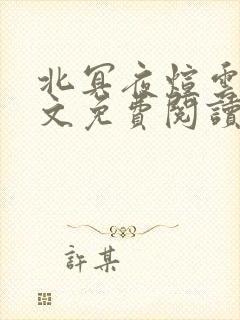 北冥夜煊雲
文免費閱讀
許某